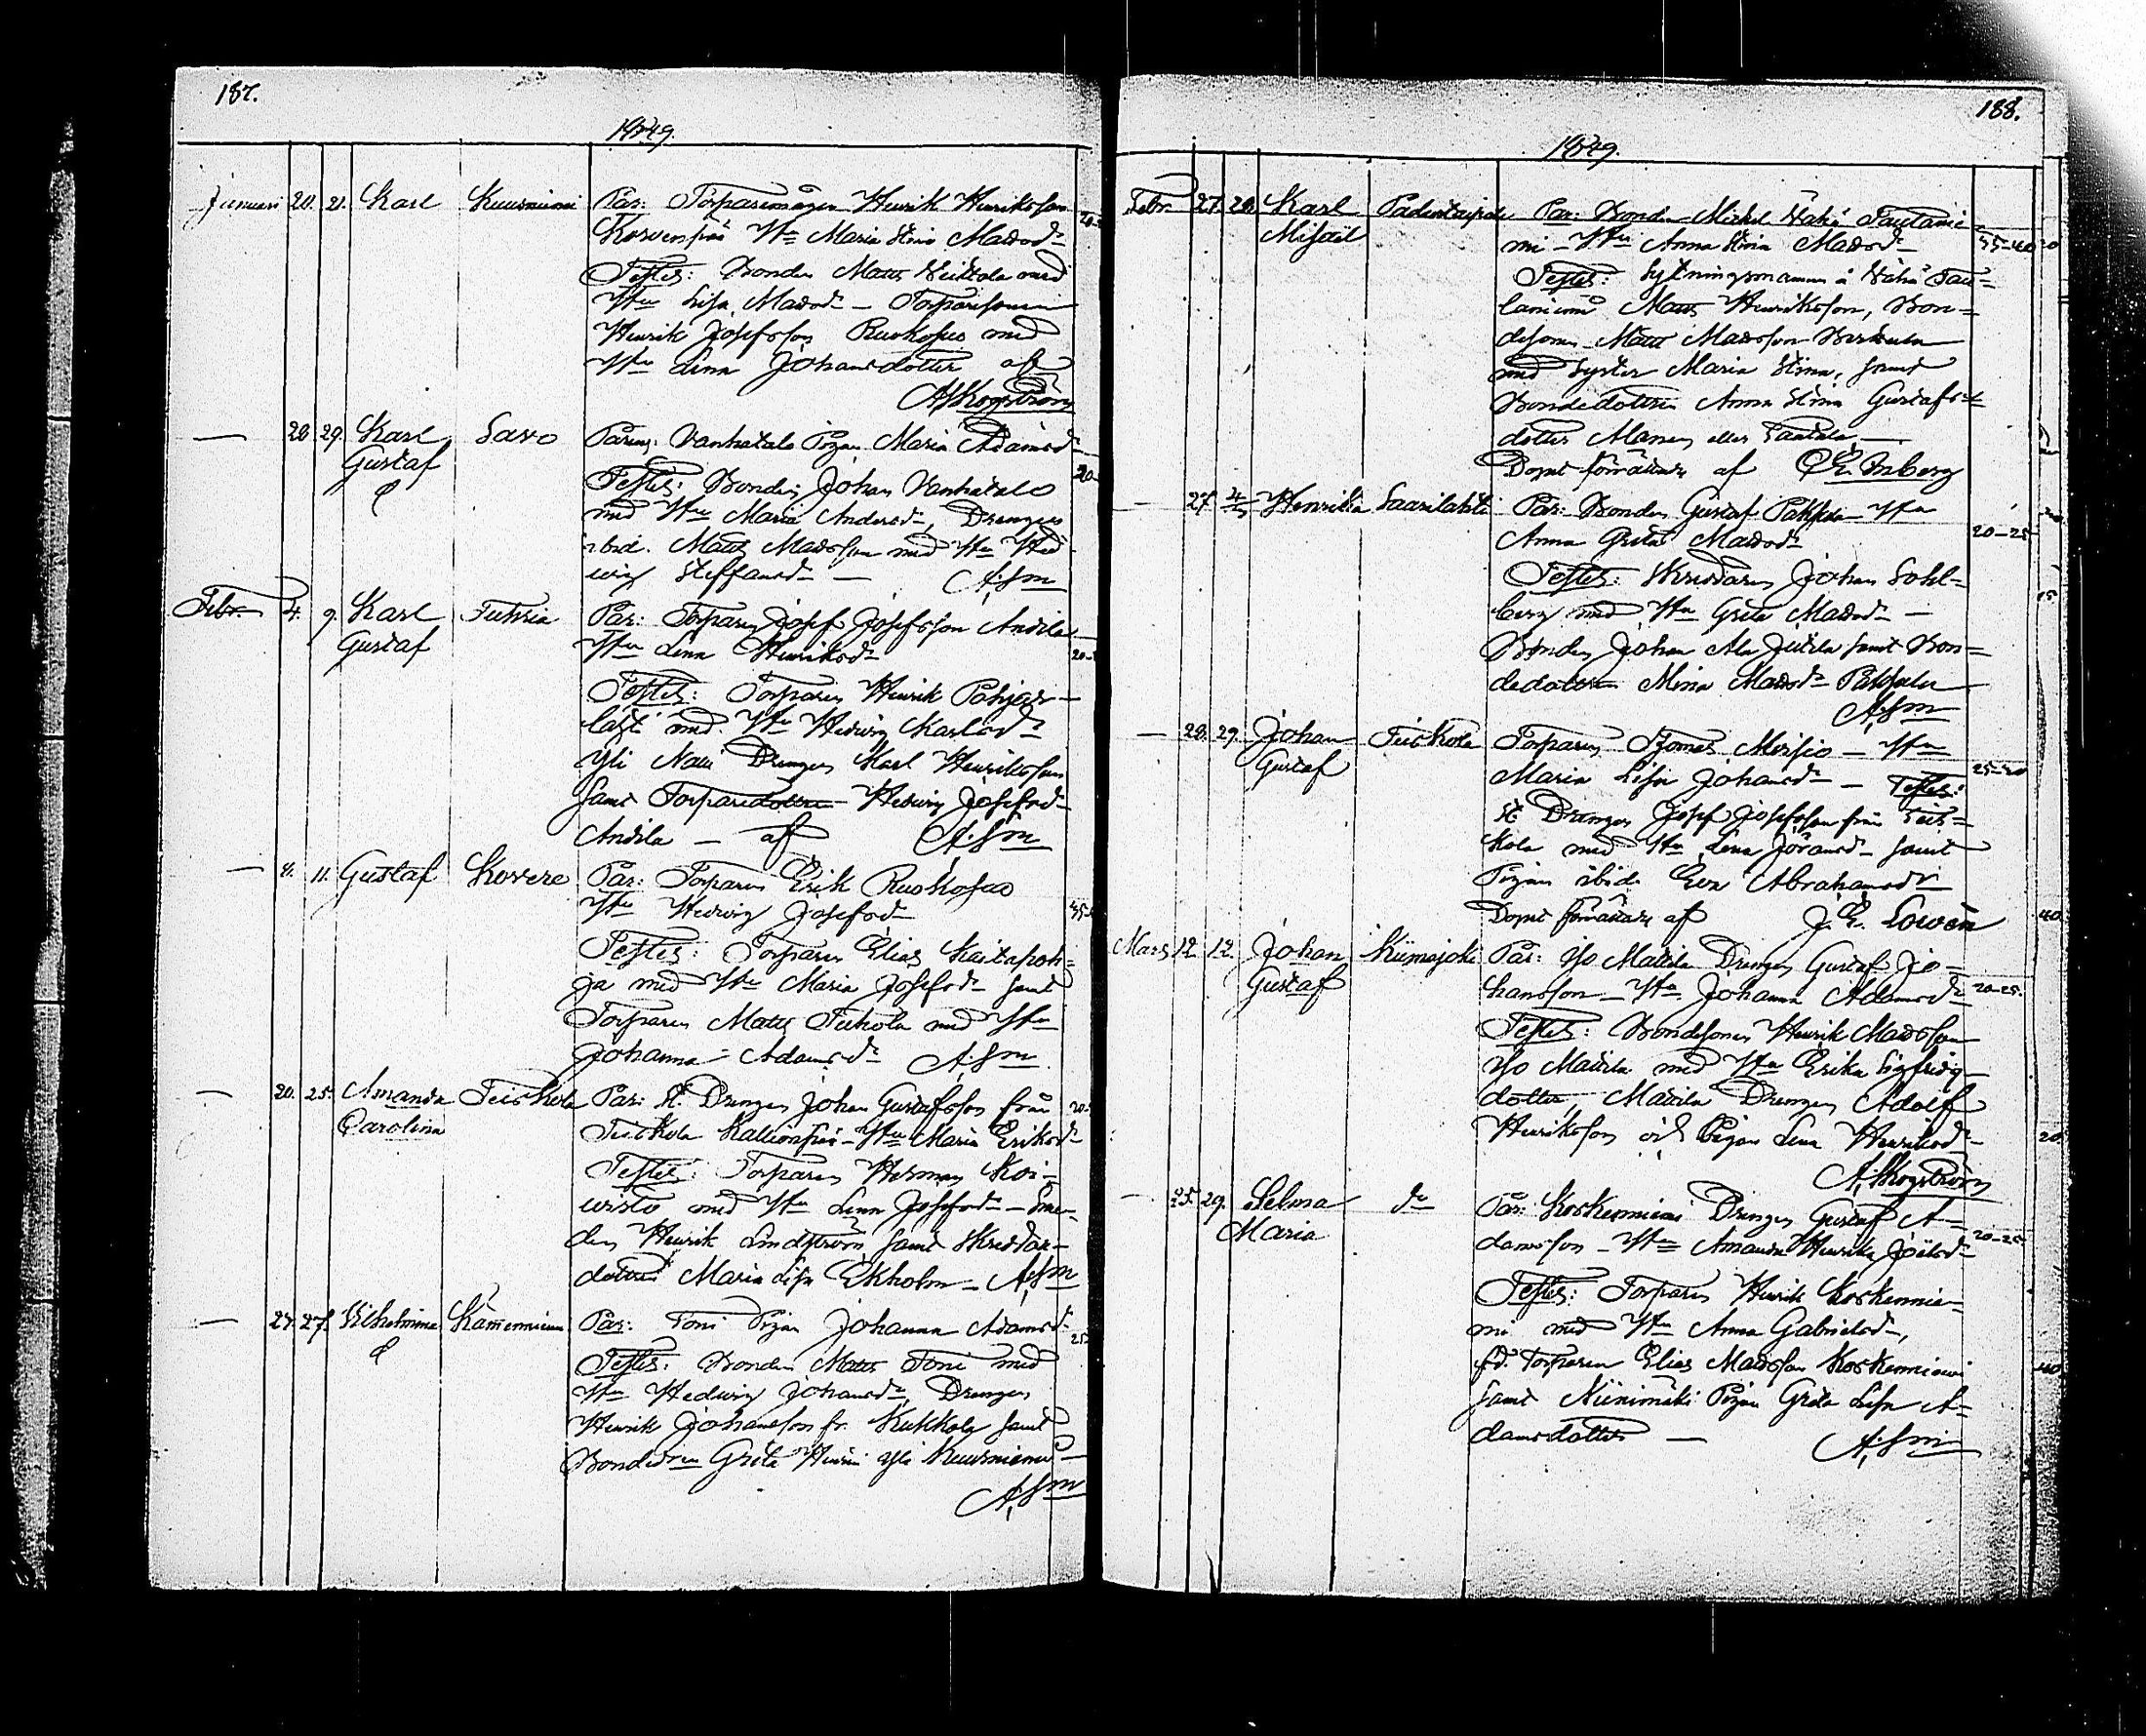 187.
1849.
Januari 20. 21. Karl Kuusniemi Par: Torparemågen Henrik Henriksson
Korvenpää Hu Maria Stina Matsdr
Testes: Bonden Matts Heikkola med
Hu Lisa Matsdr — Torparesonen
Henrik Josefsson Ruokosuo med
Hu Lena Johansdotter af
A Skogström
— 28 29. Karl Savo Paren: Vanhatalo Pigan Maria Adamsdr
Gustaf 20-
Testes: Bonden Johan Vanhatalo
med Hu Maria Andersdr, Drengen
ibid. Matts Matsson med Hu Hed-
wig Steffansdr — A. Sm
Febr. 4. 9. Karl Tuhria Par: Torparen Josef Josefsson Andila
Gustaf Hu Lena Henriksdr 20-
Testes: Torparen Henrik Pohjas-
med Hu Hedwig Karlsdr
Yli Drengen Karl Henriksson
samt Torparedottren Hedwig Josefsdr
Andila — af A. Sm
— 8. 11. Gustaf Kovere Par: Torparen Erik Ruokosuo
Hu Hedwig Josefsdr 35-
Testes: Torparen Elias Kaitapoh-
ja med Hu Maria Josefsdr samt
Torparen Matts Tuhola med Hu
Johanna Adamsdr A. Sm
— 20. 25. Amanda Teiskola Par: St. Drengen Johan Gustafsson från 20-
Carolina Teiskola Kallionpää - Hu Maria Eriksdr
Testes: Torparen Herman Koi-
wisto med Hu Lena Josefsdr — Sme-
den Henrik Lindström samt Skreddar-
dottren Maria Lisa Ekholm — A. Sm
— 27. 27. Wilhelmina Kämenniemi Par: Toni Pigan Johanna Adamsdr 25
Testes: Bonden Matts Toni med
Hu Hedwig Johansdr, Drengen
Henrik Johansson fr. Kukkola samt
Bondedrn Greta Henrica Yli Kuusniemi
A. Sm
188.
1849.
Febr. 27. 28. Karl Padustaipale Par: Bonden Michel Vähä Tautanie-
Misael mi - Hu Anna Stina Matsdr 35-40
Testes: Sytningsmannen å Vähä Tau-
taniemi Matts Henriksson, Bon-
desonen Matts Matsson
med Syster Maria Stina, samt
Bondedottren Anna Stina Gustafs-
dotter eller Tautala —
Dopet förrättade af
— 27 4/3 Henrika Saarilahti Par: Bonden Gustaf Pakkala Hu
Anna Greta Matsdr 20-25
Testes: Skreddaren Johan Sohl-
berg med Hu Greta Matsdr —
Bonden Johan Ala Jutila samt Bon-
dedottren Mina Matsdr Pakkala
A. Sm
— 28. 29. Johan Teiskola Torparen Thomas Moisio — Hu
Gustaf Maria Lisa Johansdr — Testes: 25-30
St. Drengen Josef Josefsson från Teis-
kola med Hu Lena Göransdr samt
Pigan ibid. Eva Abrahamsdr
Dopet förrättade af J. E. Lowén 40
Mars 12 12. Johan Kiimajoki Par: Yso Mattila Drengen Gustaf Jo-
Gustaf hansson - Hu Johanna Adamsdr 20-25.
Testes: Bondesonen Henrik Matsson
Yso Mattila med Hu Erika Sigfrids-
dotter, Mattila Drengen Adolf
Henriksson och Pigan Lena Henriksdr 20
A. Skogström
— 25. 29. Selma do Par: Koskenniemi Drengen Gustaf A-
Maria damsson - Hu Amanda Henrika Joelsdr 20-25
Testes: Torparen Henrik Koskennie-
mi med Hu Anna Gabrielsdr,
fd. Torparen Elias Matsson Koskenniemi 40
samt Niinimäki Pigan Greta Lisa A-
damsdotter — A. Sm